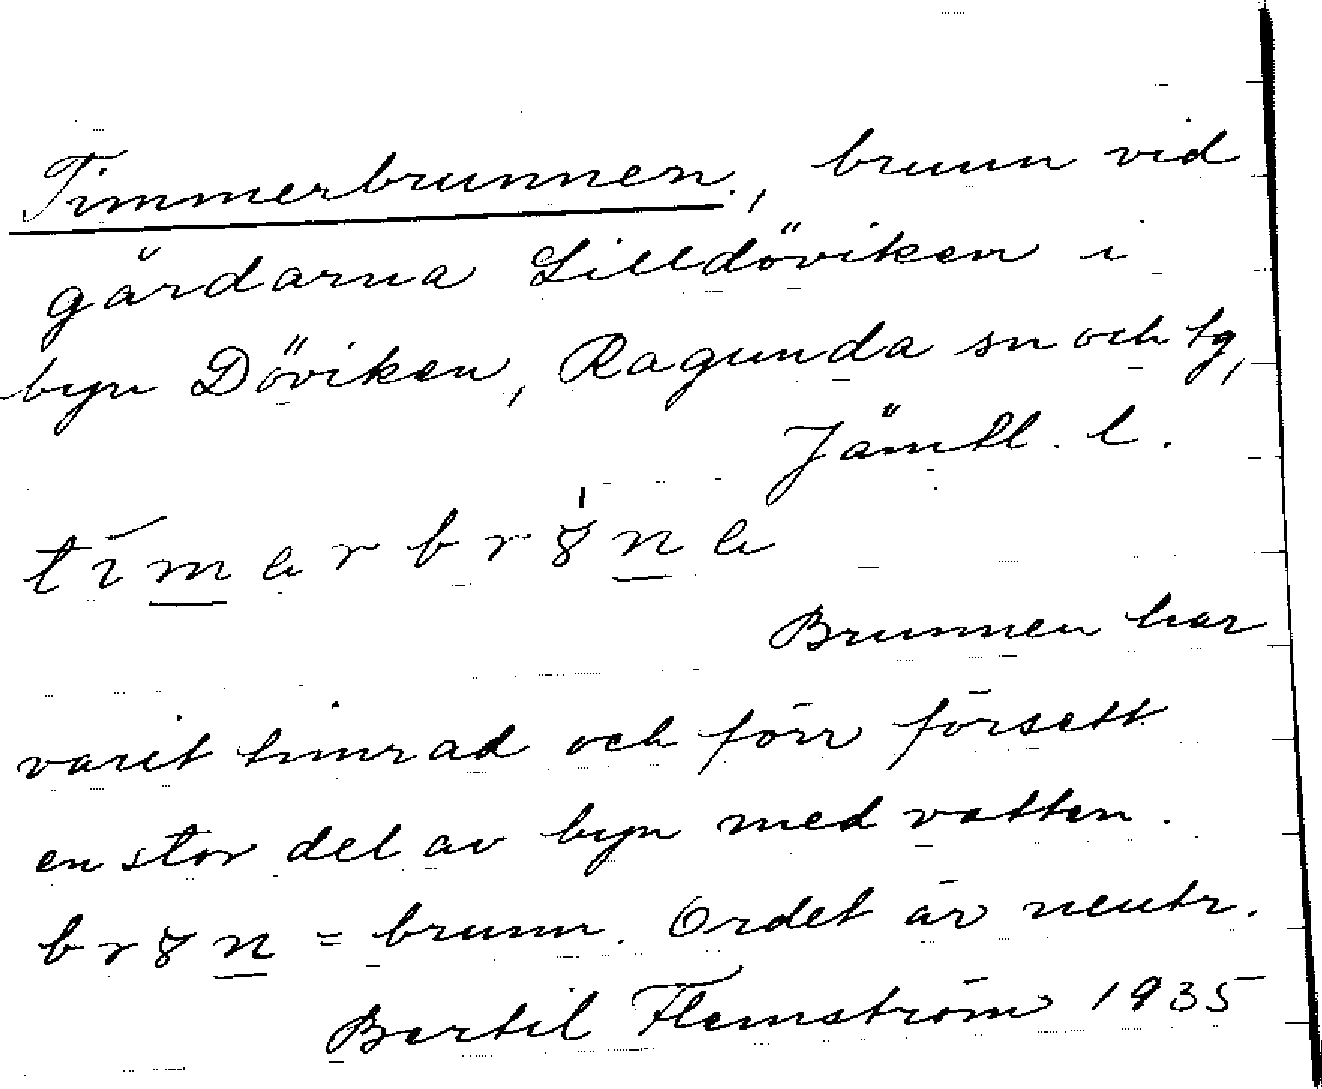 Timmerbrunnen, brunn vid
gårdarna Lilldöviken i
byn Döviken, Ragunda sn och tg,
Jämtl. l.
timərbrȣnə
Brunnen har
varit timrad och förr försett
en stor del av byn med vatten.
brȣn = brunn. Ordet är neutr.
Bertil Flemström 1935